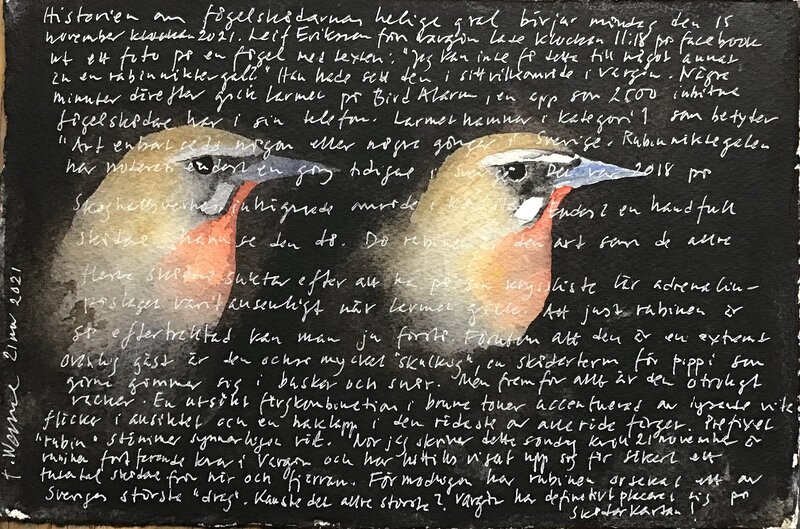 Historien om fågelskådarnas helige gral börjar måndag den 15
november klockan 2021. Leif Eriksson från Vargön lade klockan 11:18 på facebook
ut ett foto på en fågel med texten: "Jag kan inte få detta till något annat
än en rubinnäktergal!" Han hade sett den i sitt villaområde i Vargön. Några
minuter därefter gick larmet på Bird Alarm, en app som 2500 inbitna
fågelskådare har i sin telefon. Larmet hamnar i kategori 1 som betyder
"Art enbart sedd någon eller några gånger i Sverige. Rubinnäktergalen
har noterats endast en gång tidigare i Sverige. Det var 2018 på
Skoghallsverkens inhägnade område i Endast en handfull
skådare hann se den då. Då rubinen är den art som de allra
flesta skådare suktar efter att ha på sin krysslista lär adrenalin-
påslaget varit ansenligt när larmet gick. Att just rubinen är
så eftertraktad kan man ju förstå. Förutom att den är en extremt
ovanlig gäst är den också mycket "skulkig", en skådarterm för pippi som
gärna gömmer sig i buskar och snår. Men framför allt är den otroligt
vacker. En utsökt färgkombination i bruna toner accentuerad av lysande vita
fläckar i ansiktet och en haklapp i den rödaste av alla röda färger. Prefixet
"rubin" stämmer synnerligen väl. När jag skriver detta söndag kväll 21 november är
rubinen fortfarande kvar i Vargön och har hittills visat upp sig för säkert ett
tusental skådare från när och fjärran. Förmodligen har rubinen orsakat ett av
Sveriges största "drag". Kanske det allra största? Vargön har definitivt placerat sig på
skådarkartan!
T. Wernne 21 nov 2021